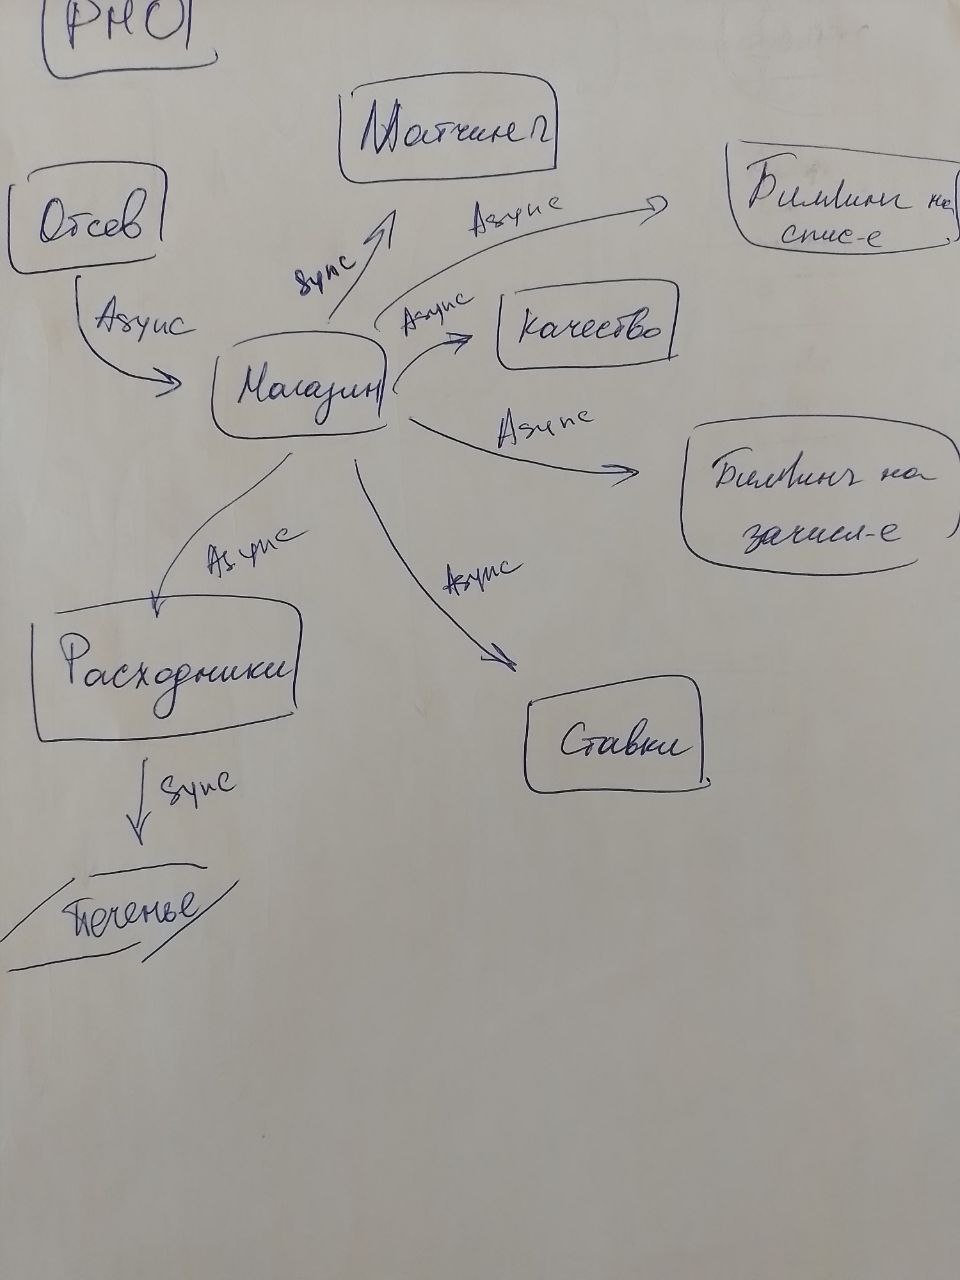 РНО
Матчинг
Отсев
Биллинг на
спис-е
Async
Sync
Async
Async
Качество
Магазин
Async
Биллинг на
зачисл-е
Async
Async
Расходники
Ставки
Sync
Печенье